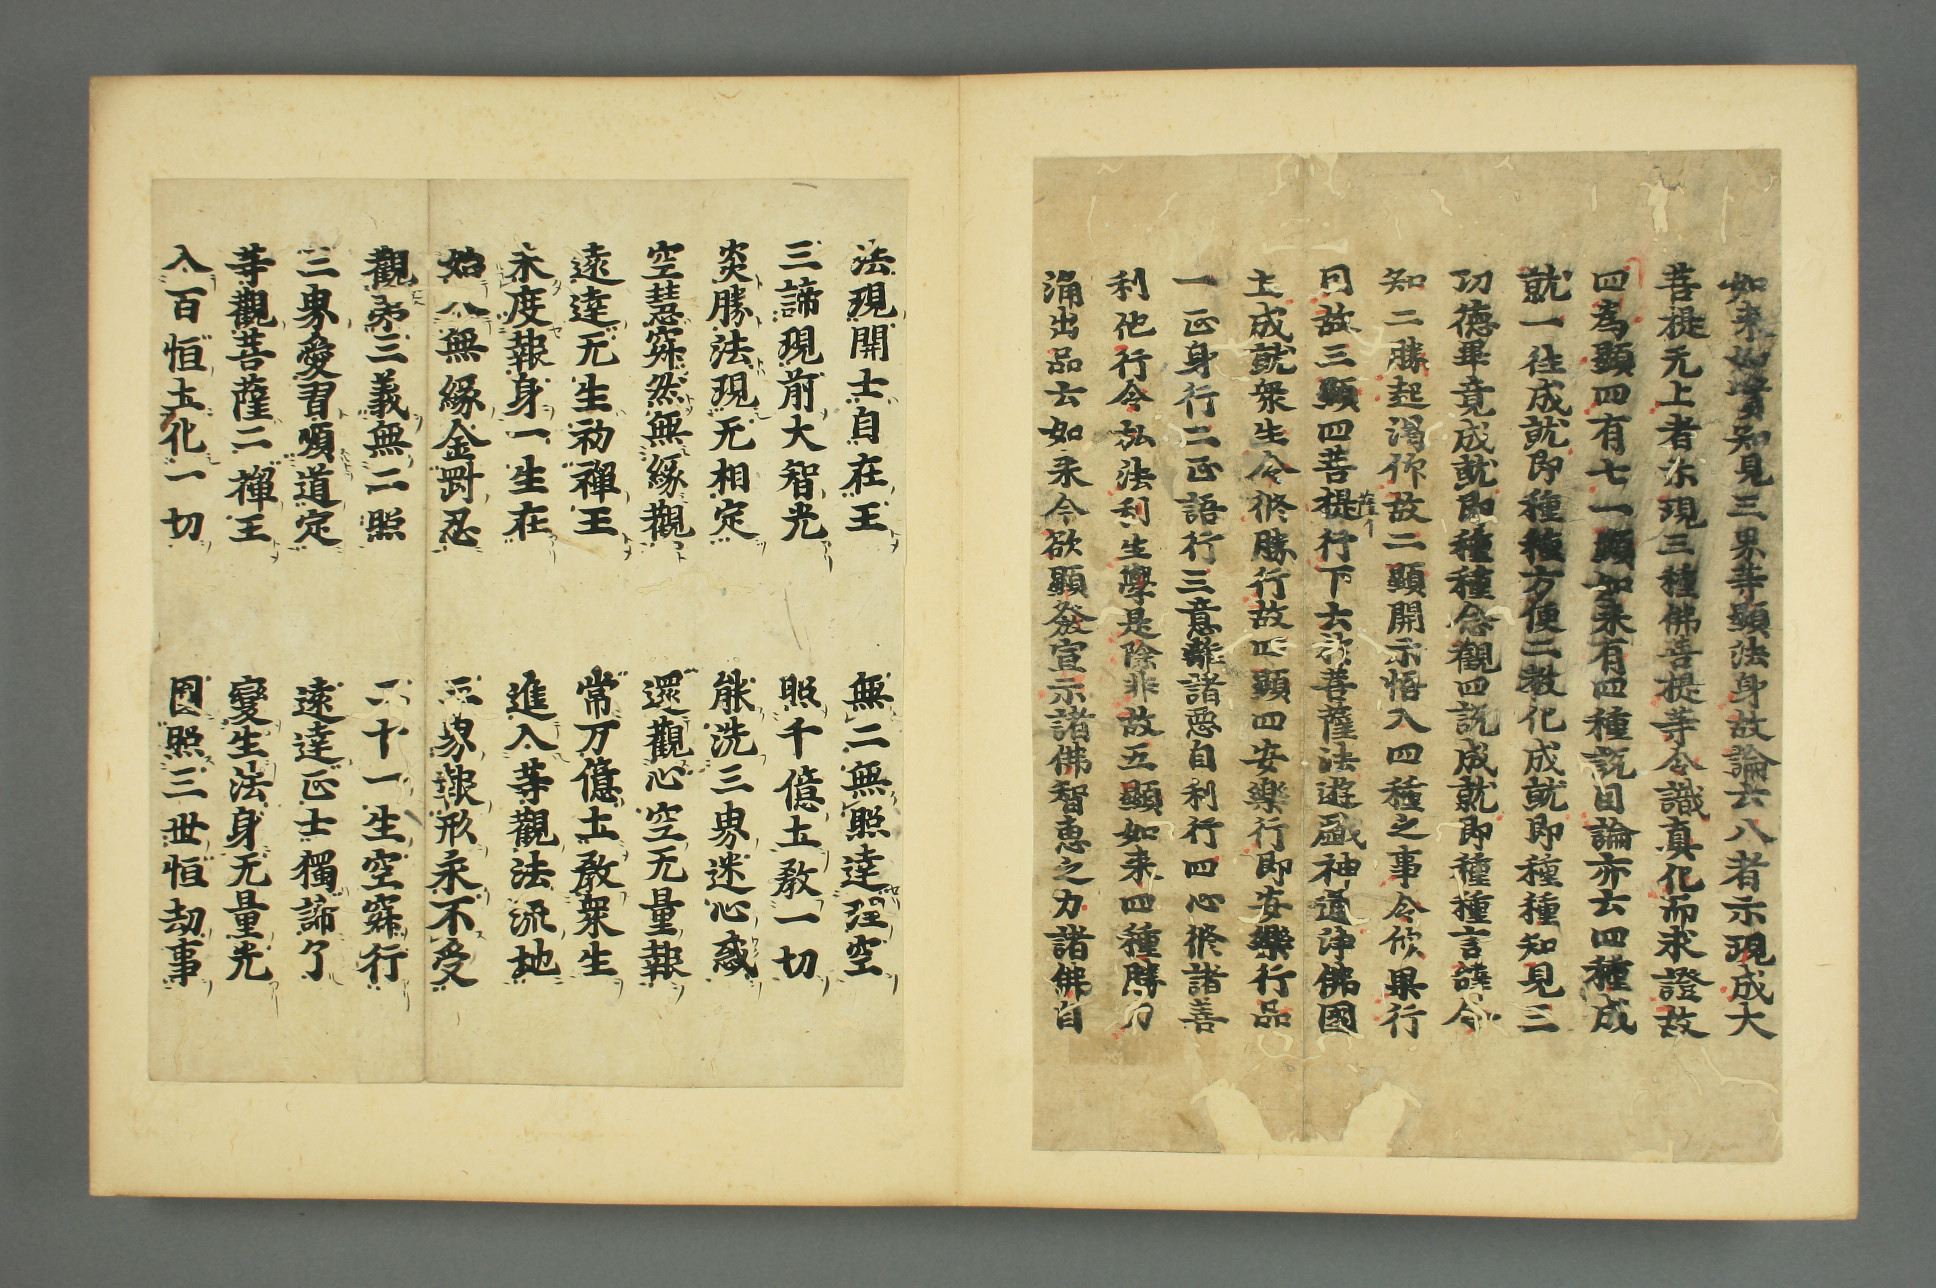 如来如實知見三界等顯法身故論云八者示現成大
菩提无上者示現三種佛菩提等令識真化而求證故
四為顯四有七一顯如来有四種說因論亦云四種成
就一住成就即種種方便二教化成就即種種知見三
功德畢竟成就即種種念觀四説成就即種種言辞令
知二勝起渴仰故二顯開示悟入四種之事令欣果行
同故三顯四菩提行下云於菩薩法遊戲神通浄佛國
薩个
土成就衆生令修勝行故四顯四安樂行即安樂行品
一正身行二正語行三意離諸惡自利行四心修諸善
利他行令弘法利生學是除非故五顯如来四種勝力
涌出品云如来今欲顯發宣示諸佛智恵之力諸佛自
法現開士自在王　無二無照達理空
三諦現前大智光　照千億土教一切
炎勝法現无相定　能洗三界迷心惑
空慧寂然無緣觀　還觀心空无量報
遠達无生初禪王　常万億土教衆生
未度報身一生在　進入等觀法流地
始入無緣金剛忍　三界報形永不受
觀弟三義無二照　二十一生空寂行
三界愛習順道定　遠達正士獨諦了
等觀菩薩二禪王　變生法身无量光
入百恒土化一切　圓照三世恒劫事